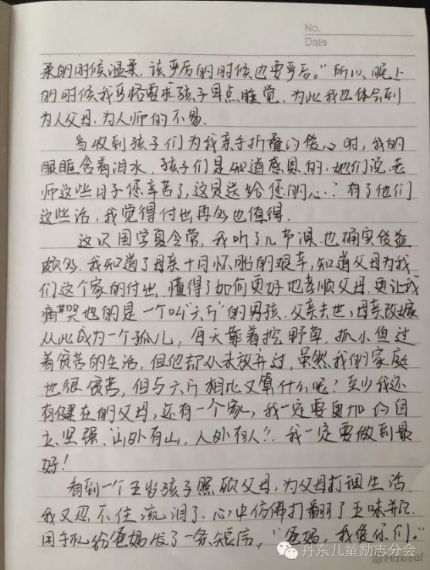 No.
Date
柔的时候温柔,该严厉的时候也要严厉。"所以,晚上
的时候我严格要求孩子早点睡觉,为此我也体会到
为人父母,为人师的不易.
当收到孩子们为我亲手折叠的爱心时,我的
眼眶含着泪水.孩子们是知道感恩的.她们说老
师这些日子您辛苦了,这是送给您的心.有了他们
这些话,我觉得付出再多也值得.
这次国学夏令营,我听了几节课.也确实受益
颇多.我知道了母亲十月怀胎的艰辛,知道父母为我
们这个家的付出.懂得了如何更好地孝顺父母.更让我
痛哭的是一个叫"六斤"的男孩.父亲去世,母亲改嫁
从此成为一个孤儿,每天靠着挖野草.抓小鱼过
着贫苦的生活,但他却从未放弃过,虽然我们家庭
也很贫苦,但与六斤相比又算什么呢!至少我还
有健在的父母,还有一个家,我一定要更加的自
立.坚强.山外有山,人外有人!我一定要做到最
好!
看到一个五岁孩子照顾父母,为父母打理生活.
我又忍不住流泪了.心中仿佛打翻了五味瓶.
用手机给爸妈发了一条短信,"爸妈,我爱你们."
丹东儿童励志分会